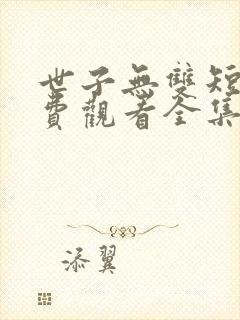 世子無雙短
費觀看全集
添翼